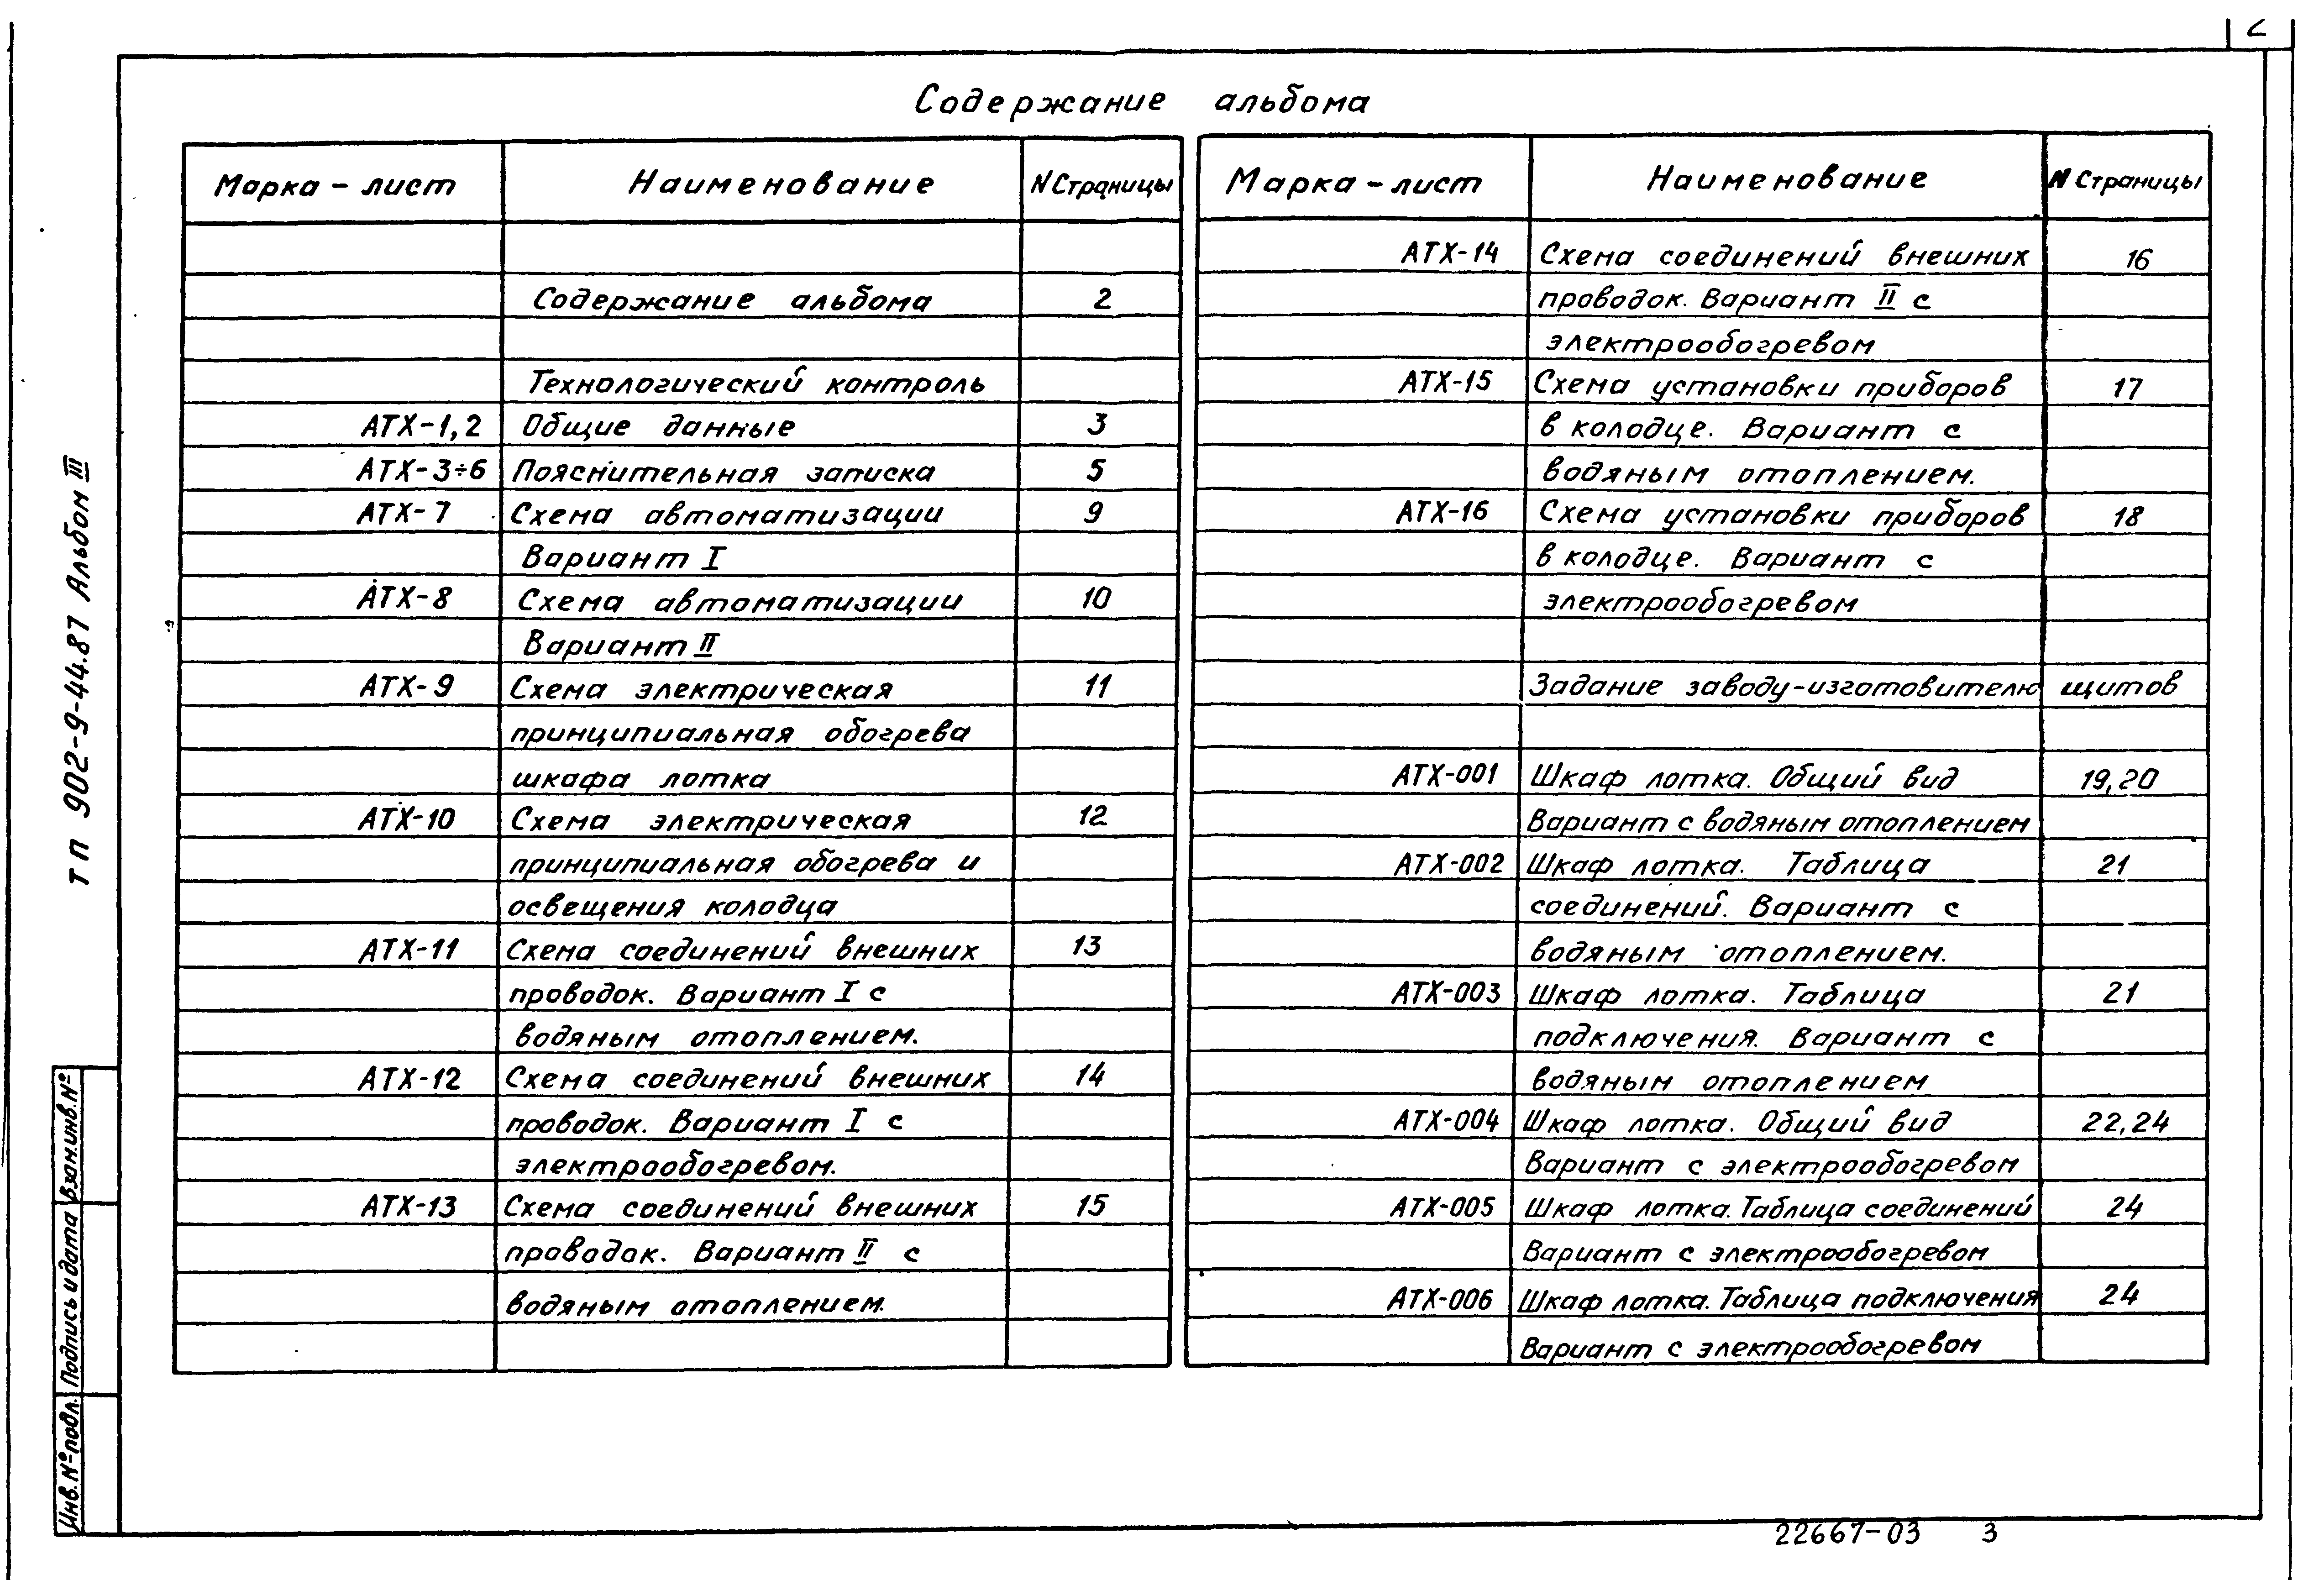 2
Содержание альбома
Марка - лист Наименование N Страницы
Содержание альбома 2
Технологический контроль
АТХ-1,2 Общие данные 3
АТХ-3÷6 Пояснительная записка 5
АТХ-7 Схема автоматизации 9
Вариант I
АТХ-8 Схема автоматизации 10
Вариант II
АТХ-9 Схема электрическая 11
принципиальная обогрева
шкафа лотка
АТХ-10 Схема электрическая 12
принципиальная обогрева и
освещения колодца
АТХ-11 Схема соединений внешних 13
проводок. Вариант I с
водяным отоплением.
АТХ-12 Схема соединений внешних 14
проводок. Вариант I с
электрообогревом.
АТХ-13 Схема соединений внешних 15
проводок. Вариант II с
водяным отоплением.
Марка - лист Наименование N Страницы
АТХ-14 Схема соединений внешних 16
проводок. Вариант II с
электрообогревом
АТХ-15 Схема установки приборов 17
в колодце. Вариант с
водяным отоплением.
АТХ-16 Схема установки приборов 18
в колодце. Вариант с
электрообогревом
Задание заводу-изготовителю щитов
АТХ-001 Шкаф лотка. Общий вид 19,20
Вариант с водяным отоплением
АТХ-002 Шкаф лотка. Таблица 21
соединений. Вариант с
водяным отоплением.
АТХ-003 Шкаф лотка. Таблица 21
подключения. Вариант с
водяным отоплением
АТХ-004 Шкаф лотка. Общий вид 22,24
Вариант с электрообогревом
АТХ-005 Шкаф лотка. Таблица соединений 24
Вариант с электрообогревом
АТХ-006 Шкаф лотка. Таблица подключения 24
Вариант с электрообогревом
тп 902-9-44.87 Альбом III
Взам.инв.№
Подпись и дата
Инв.№ подл.
22667-03 3